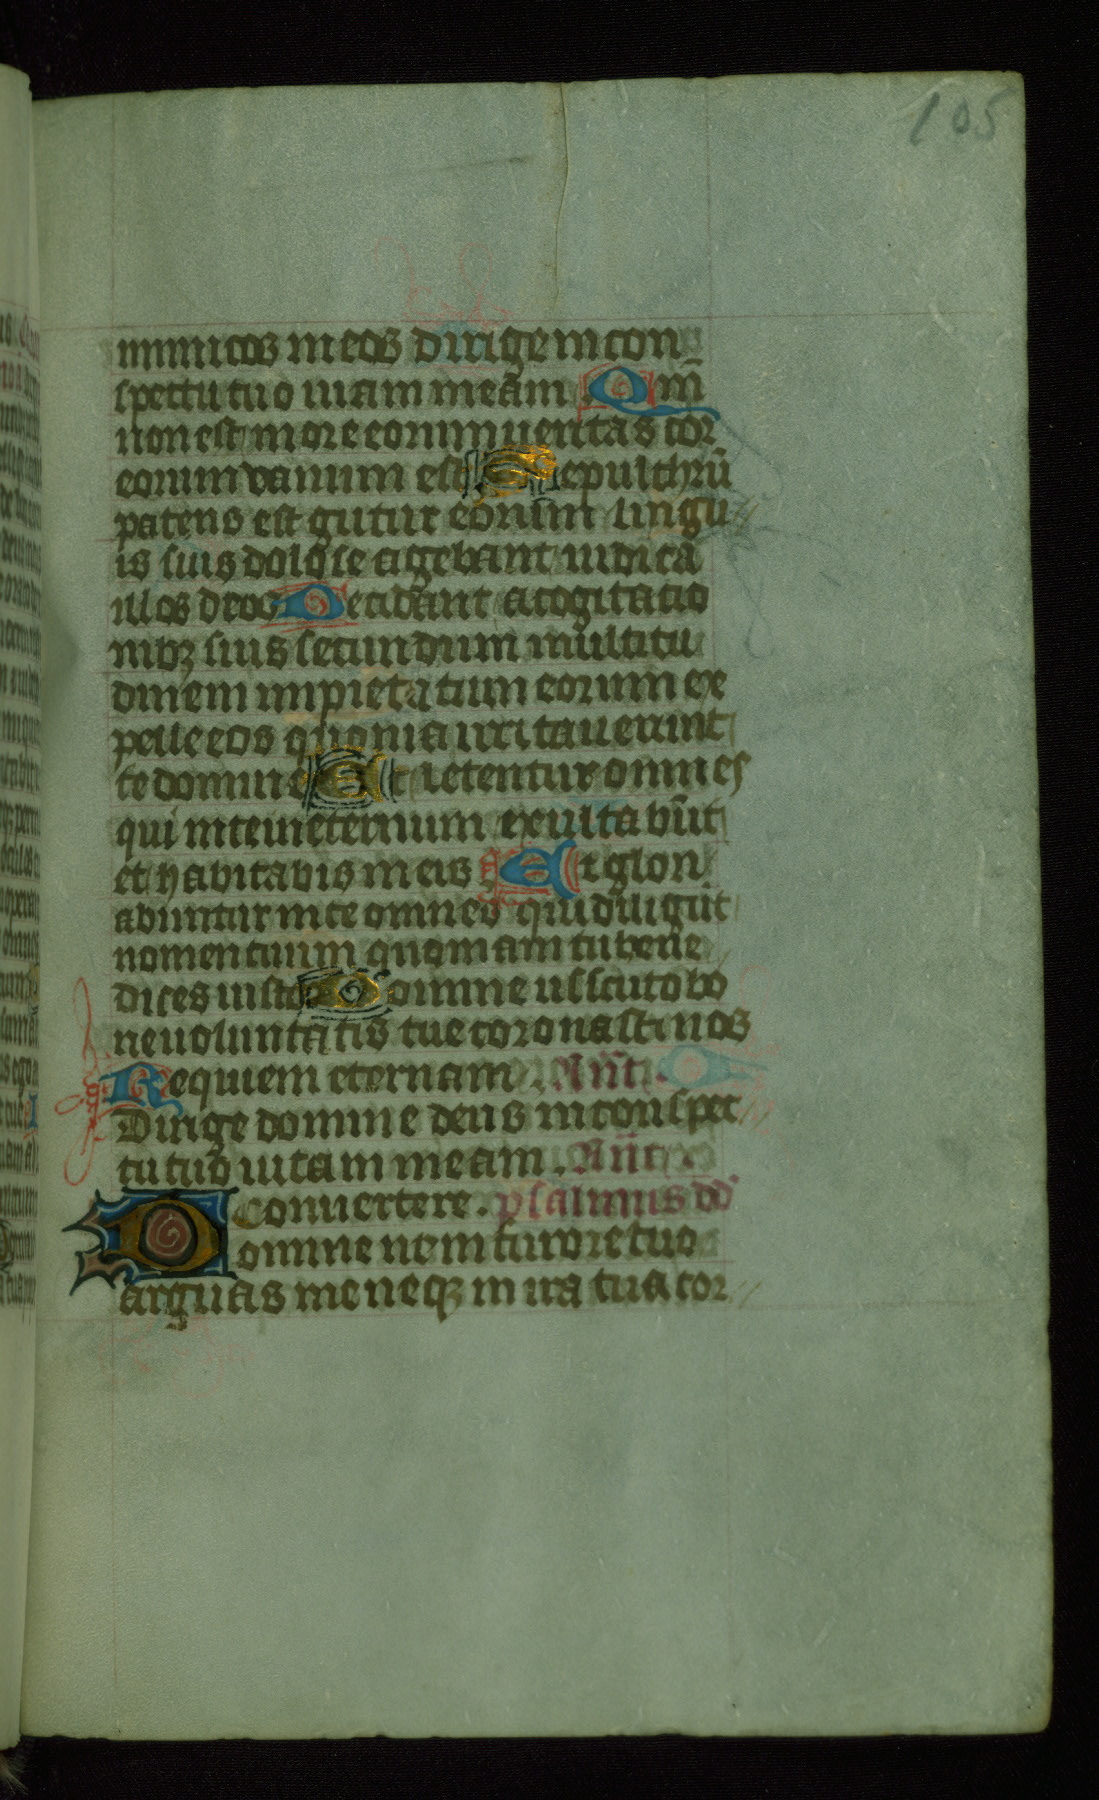 105
inimicos meos dirige in con
spectu tuo uiam meam Qm̄
non est in ore eorum ueritas cor
eorum vanum est Sepulchrū
patens est guttur eorum lingu
is suis dolose agebant iudica
illos deus Decidant a cogitatio
nibꝫ suis secundum multitu
dinem impietatum eorum ex
pelle eos quonia irritauerunt
te domine Et letentur omnes
qui in te in eternum exultabūt
et habitabis in eis Et glori
abuntur in te omnes qui diligūt
nomen tuum quoniam tu bene
dices iusto Domine ut scuto bo
ne uoluntatis tue coronasti nos
Requiem eternam. An̄t.
Dirige domine deus in conspec
tu tuo uitam meam. An̄t.
Conuertere. psalmus dd
Domine ne in furore tuo
arguas me neqꝫ in ira tua cor